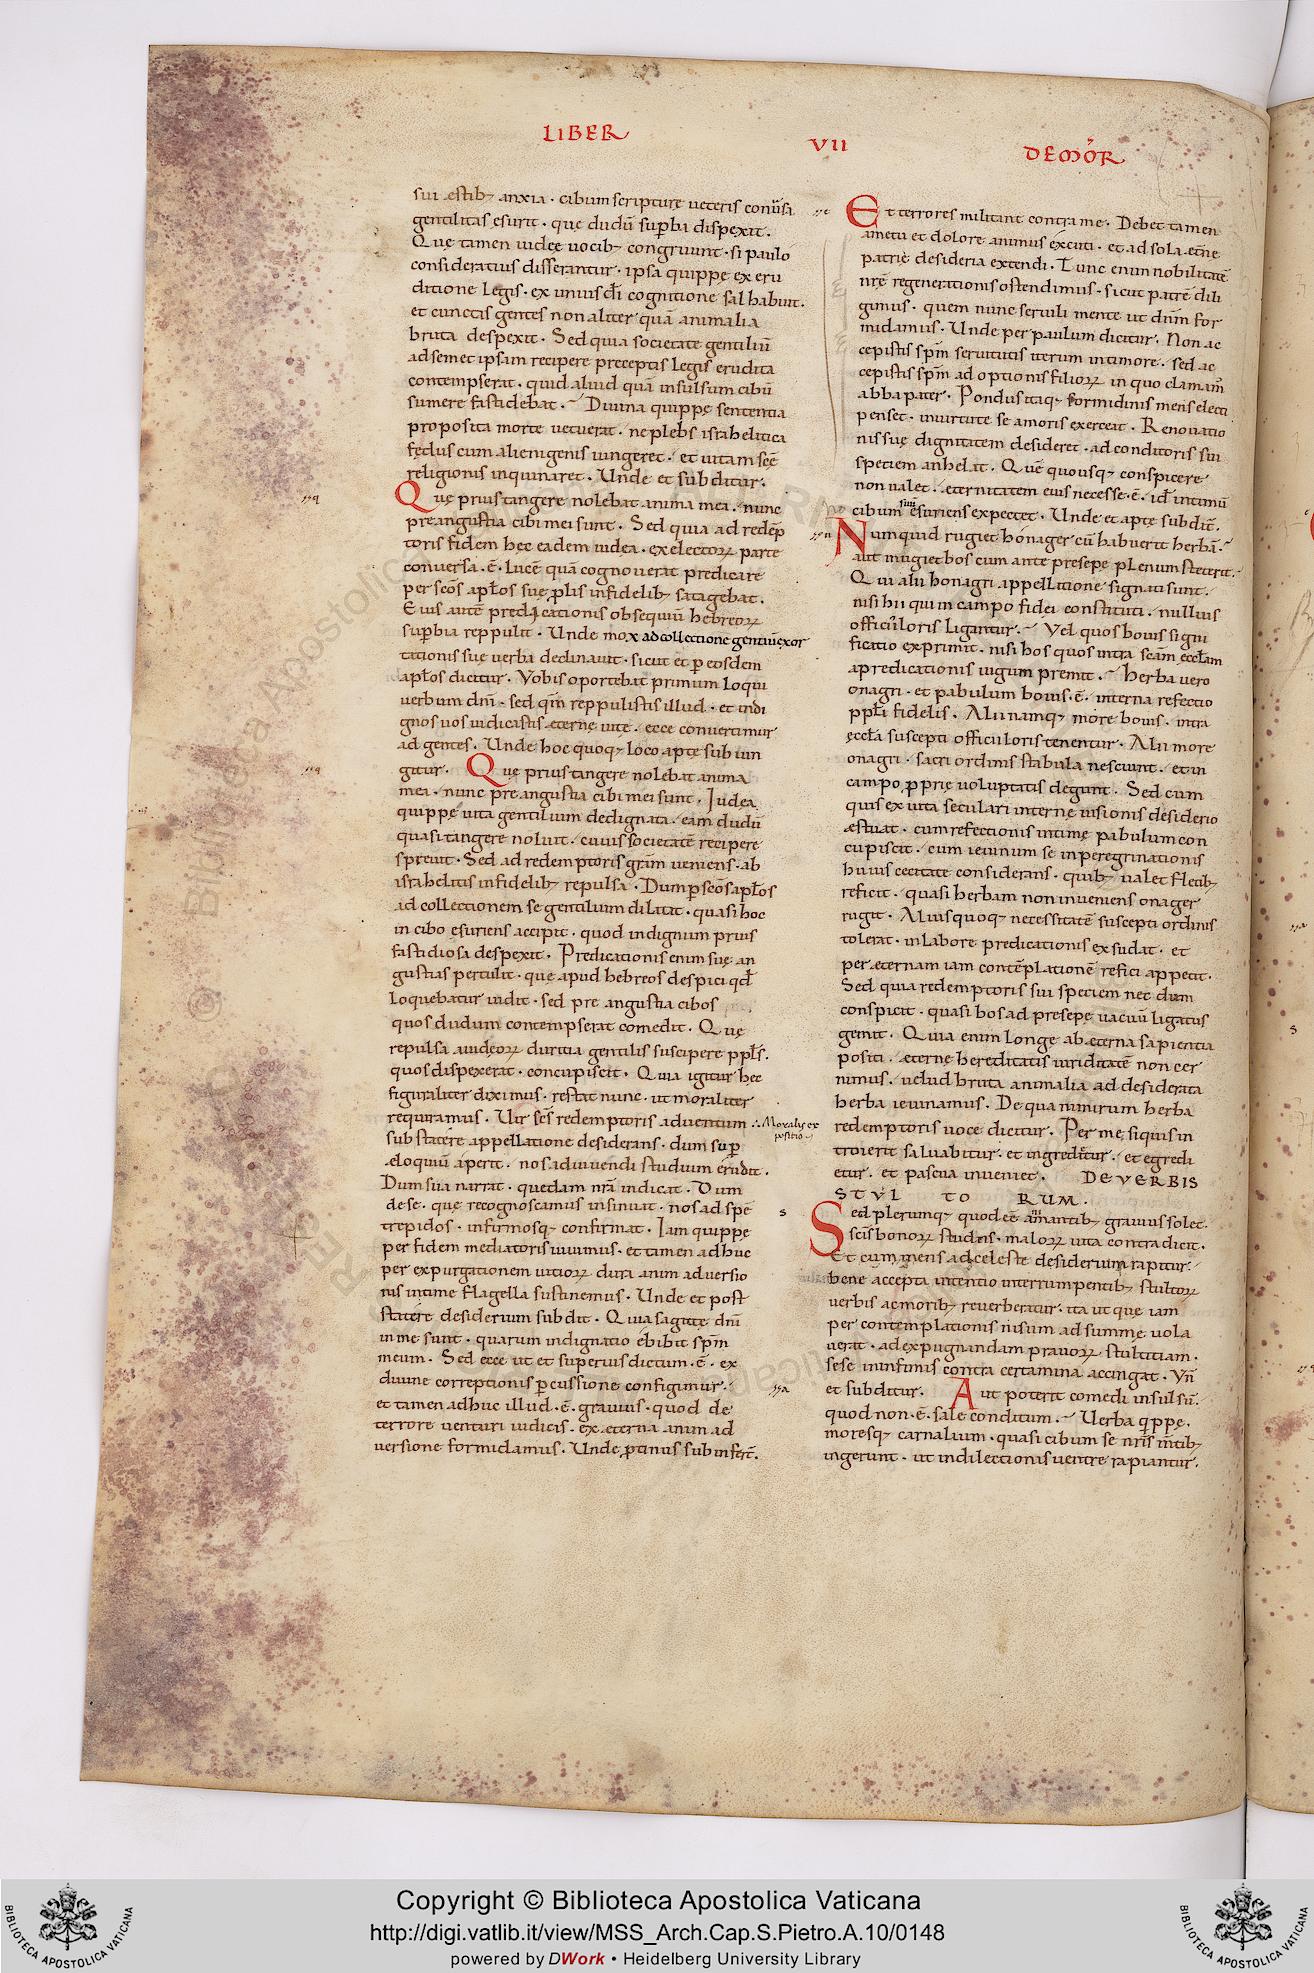 LIBER VII DEMOR̄
sui ęstib; anxia · cibum scripturę ueteris conu̅sa
gentilitas esurit · quę dudū sup̱ba dispexit .
Quę tamen iudeę uocib; congruunt · si paulo
consideratius disserantur · ipsa quippe ex eru
ditione legis · ex unius d̄i cognitione sal habuit .
et cunctas gentes non aliter quā animalia
bruta despexit . Sed quia societatē gentiliū
ad semet ipsam recipere preceptis legis erudita
contempserat . quid aliud quā insulsum cibū
sumere fastidebat . Diuina quippę sententia
proposita morte uetuerat . ne plebs israhelitica
fędus cum alienigenis iungeret . et uitam sc̄ę
religionis inquinaret . Unde et subditur .
Quę prius tangere nolebat anima mea . nunc
pre angustia cibi mei sunt . Sed quia ad redēp
toris fidem hec eadem iudea . ex electoꝝ parte
conuersa . ē . lucē quā cognouerat predicare
per sc̄os apl̄os suę ꝓlis infidelib; satagebat .
Eius autē predicationis obsequiū hebreoꝝ
sup̱bia reppulit . Unde mox ad collectionē gentiū exor
tationis suę uerba declinauit . sicut et p̱ eosdem
apl̄os dicitur . Vobis oportebat primum loqui
uerbum dn̄i . sed qm̄ reppulistis illud . et indi
gnos uos iudicastis ęternę uitę . ecce conuertimur
ad gentes . Unde hoc quoq; loco aptę subiun
gitur . Quę prius tangere nolebat anima
mea . nunc pre angustia cibi mei sunt . Iudea
quippę uita gentilium dedignata . eam dudū
quasi tangere noluit . cuius societatē recipere
spreuit . Sed ad redemptoris gr̄am ueniens . ab
israhelitis infidelib; repulsa . Dum p̱ sc̄os apl̄os
ad collectionem se gentilium dilatat . quasi hoc
in cibo esuriens accipit . quod indignum prius
fastidiosa despexit . Predicationis enim suę an
gustias pertulit . quę apud hebreos despici qd̄
loquebatur uidit . sed pre angustia cibos
quos dudum contempserat comedit . Quę
repulsa iudęoꝝ duritia gentilis suscipere ppl̄s .
quos dispexerat . concupiscit . Quia igitur hec
figuraliter diximus . restat nunc . ut moraliter
requiramus . Uir sc̄s redemptoris aduentum ∴ Moralis ex
positio
sub statere appellatione desiderans . dum sup̱
ęloquiū aperit . nos ad uiuendi studium erudit .
Dum sua narrat . quedam nr̄a indicat . Dum
de se . quę recognoscamus insinuat . nos ad spē
trepidos . infirmosq; confirmat . Iam quippę
per fidem mediatoris uiuimus . et tamen adhuc
per expurgationem uitioꝝ dura anim aduersio
nis intime flagella sustinemus . Unde et post
staterę desiderium subdit . Quia sagittę dn̄i
in me sunt . quarum indignatio ebibit sp̄m
meum . Sed ecce ut et superius dictum . ē . ex
diuine correptionis p̱cussione configimur .
et tamen adhuc illud . ē . grauius . quod de
terrore uenturi iudicis . ex ęterna anim ad
uersione formidamus . Unde ꝓtinus subinfert̄ .
Et terrores militant contra me . Debet tamen
a metu et dolore animus excuti . et ad sola ęt̄ne
patrię desideria extendi . Tunc enim nobilitatē
nr̄ę regenerationis ostendimus . si eū ut patrē dili
gimus . quem nunc seruili mente ut dn̄m for
midamus . Unde per paulum dicitur . Non ac
cepistis sp̄m seruitutis iterum in timore . sed ac
cepistis sp̄m adoptionis filioꝝ in quo clamam̄
abba pater . Pondus itaq; formidinis mens electi
penset . in uirtute se amoris exerceat . Renouatio
nis suę dignitatem desideret . ad conditoris sui
speciem anhelat . Quē quousq; conspicere
non ualet . ęternitatem eius necesse . ē . id ē intimū
cibum suū esuriens expectet . Unde et aptę subdit̄ .
Numquid rugiet honager cū habuerit herbā .
aut mugiet bos cum ante presepę plenum steterit .
Qui alii honagri appellatione signati sunt .
nisi hii qui in campo fidei constituti . nullius
officii loris ligantur . Vel quos bouis signi
ficatio exprimit . nisi hos quos intra sc̄am ęccl̄am
a predicationis iugum premit . Herba uero
onagri . et pabulum bouis . ē . interna refectio
ppl̄i fidelis . Alii namq; more bouis . intra
ęccl̄a suscepti officii loris tenentur . Alii more
onagri . sacri ordinis stabula nesciunt . et in
campo ꝓprię uoluptatis degunt . Sed cum
quis ex uita seculari internę uisionis desiderio
ęstuat . cum refectionis intimę pabulum con
cupiscit . cum ieiunum se in peregrinationis
huius cecitate considerans . quib; ualet fletib;
reficit . quasi herbam non inueniens onager
rugit . Alius quoq; necessitatē suscepti ordinis
tolerat . in labore predicationis exsudat . et
per ęternam iam contēplationē refici appetit .
Sed quia redemptoris sui speciem nec dum
conspicit . quasi bos ad presepę uacuū ligatus
gemit . Quia enim longe ab ęterna sapientia
positi . ęternę hereditatis uiriditatē non cer
nimus . uelud bruta animalia ad desiderata
herba ieiunamus . De qua nimirum herba
redemptoris uoce dicitur . Per me si quis in
troierit saluabitur . et ingredietur . et egredi
etur . et pascua inueniet . DE VERBIS
STVLTORUM .
Sed plerumq; quod eē amantib; grauius solet .
sc̄is bonoꝝ studiis . maloꝝ uita contradicit .
Et cum mens ad cęleste desiderium rapitur .
bene accepta intentio interrumpentib; stultoꝝ
uerbis ac morib; reuerberatur . ita ut quę iam
per contemplationis nisum ad summę uola
uerat . ad expugnandam prauoꝝ stultitiam .
sese in infimis contra certamina accingat . Vn̄
et subditur . Aut poterit comedi insulsū .
quod non . ē . sale conditum . Uerba q̱ppe .
moresq; carnalium . quasi cibum se nr̄is m̄tib;
ingerunt . ut in dilectionis uentre rapiantur .
Copyright © Biblioteca Apostolica Vaticana
http://digi.vatlib.it/view/MSS_Arch.Cap.S.Pietro.A.10/0148
powered by DWork • Heidelberg University Library
BIBLIOTECA APOSTOLICA VATICANA
BIBLIOTECA APOSTOLICA VATICANA